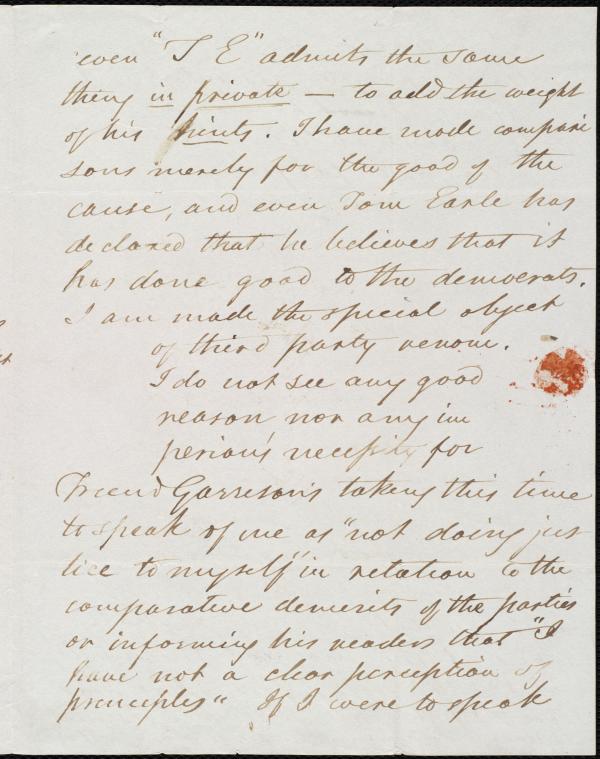 even "T E" admits the same
thing in private — to add the weight
of his hints. I have made compari
sons merely for the good of the
cause, and even Tom Earle has
declared that he believes that it
has done good to the democrats.
I am made the special object
of third party venom.
I do not see any good
reason nor any im
perious necessity for
Friend Garrison's taking this time
to speak of me as "not doing jus
tice to myself" in relation to the
comparative demerits of the parties
or informing his readers that "I
have not a clear perception of
principles" If I were to speak